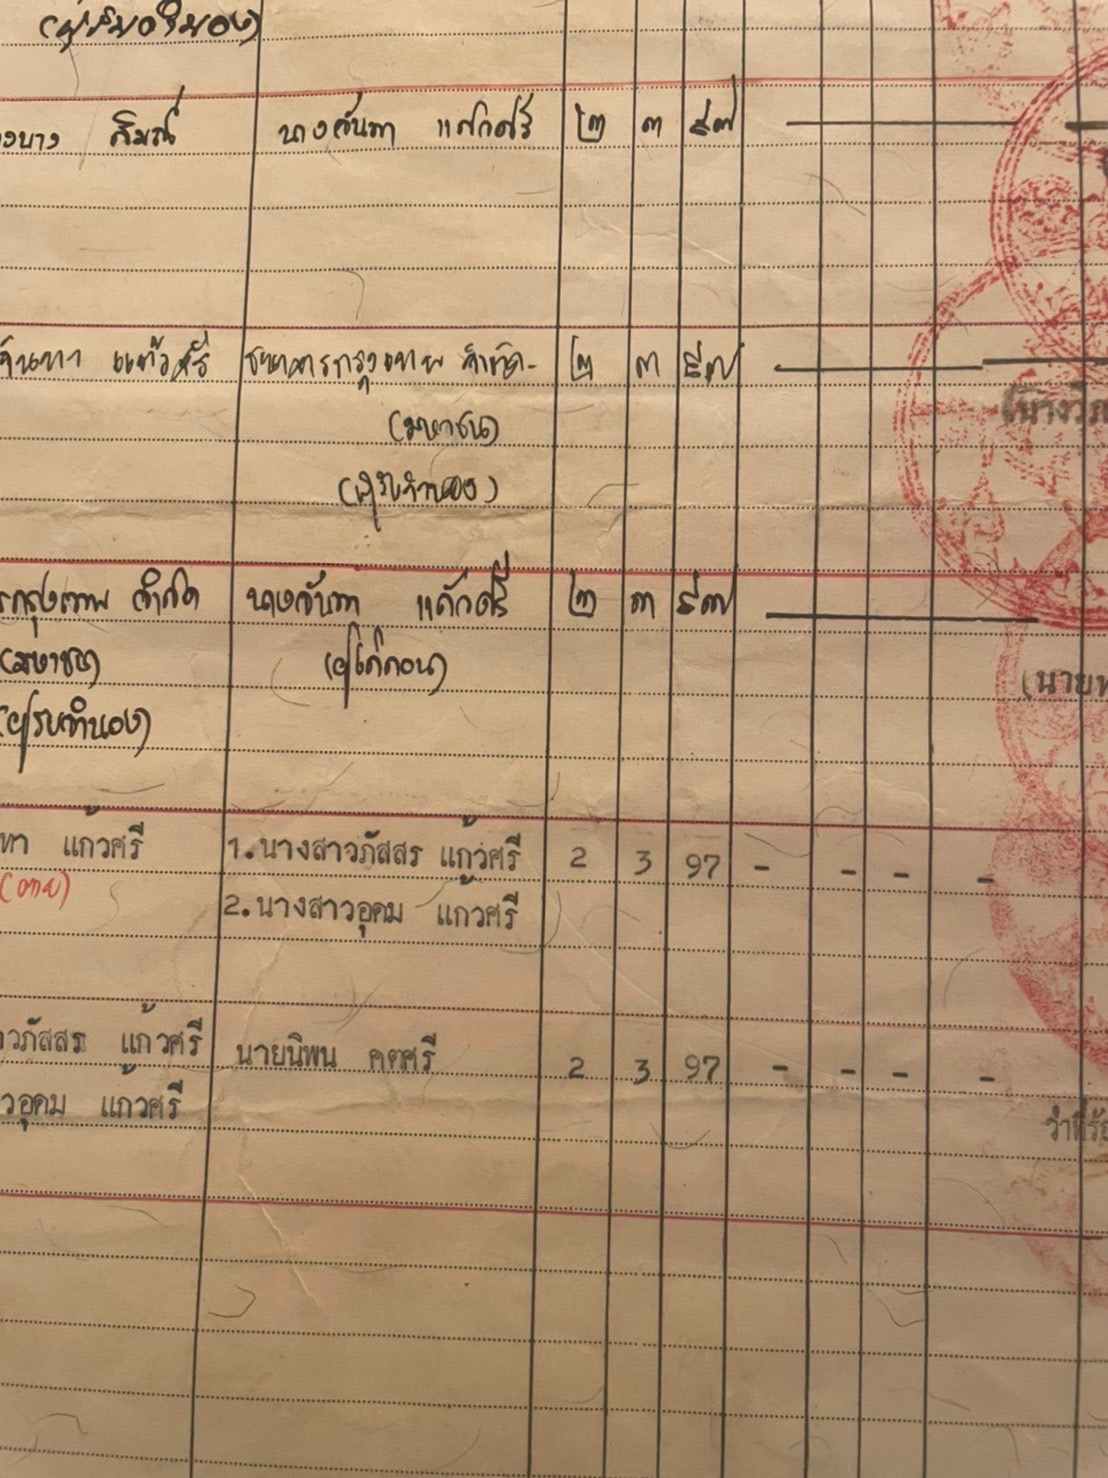 (ผู้รับจำนอง)
นางจันทา แก้วศรี ๒ ๓ ๙๗
จันทา แก้วศรี ธนาคารกรุงเทพ จำกัด - ๒ ๓ ๙๗
(มหาชน)
(ผู้รับจำนอง)
กรุงเทพ จำกัด นางจันทา แก้วศรี ๒ ๓ ๙๗
(มหาชน) (ผู้ไถ่ถอน)
(ผู้รับจำนอง)
ทา แก้วศรี 1.นางสาวภัสสร แก้วศรี 2 3 97 - - - -
(ตาย) 2.นางสาวอุดม แก้วศรี
วภัสสร แก้วศรี นายนิพน คตศรี 2 3 97 - - - -
วอุดม แก้วศรี
(นางวิ
(นาย
ว่าที่ร้อ